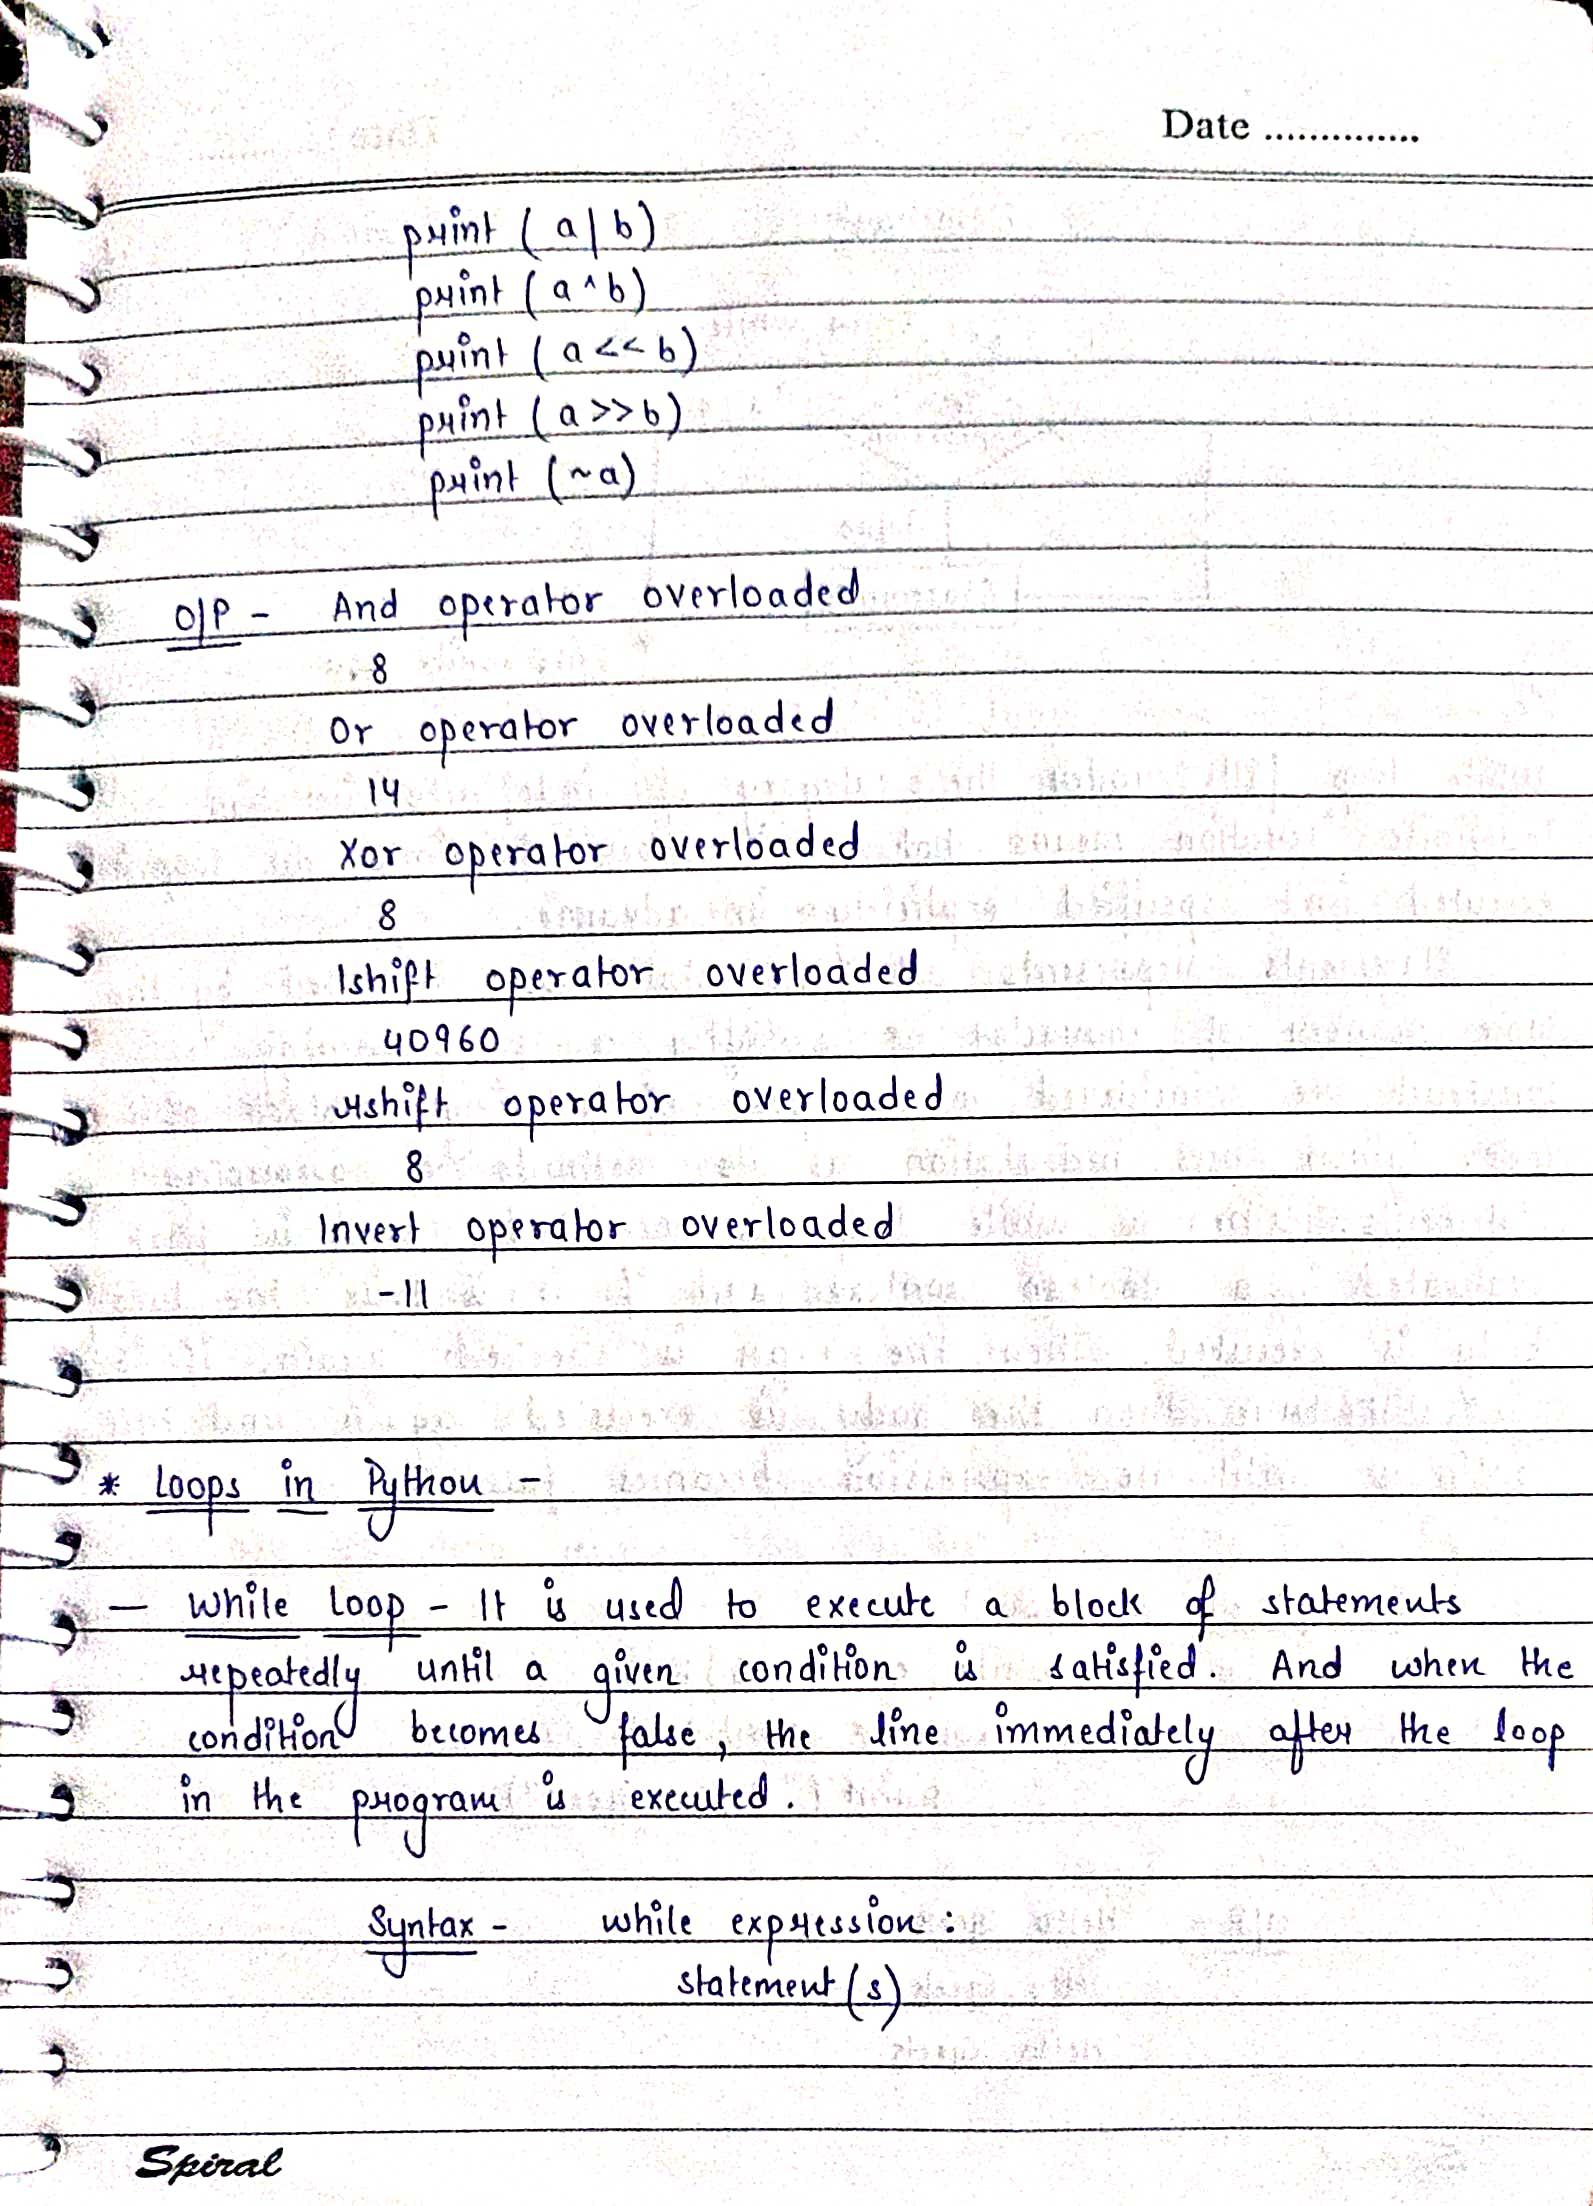 Date ..............
print ( a | b)
print ( a ^ b)
print ( a << b)
print ( a >> b)
print (~a)
O/P - And operator overloaded
8
Or operator overloaded
14
Xor operator overloaded
8
lshift operator overloaded
40960
rshift operator overloaded
8
Invert operator overloaded
-11
* Loops in Python -
— While Loop - It is used to execute a block of statements
repeatedly until a given condition is satisfied. And when the
condition becomes false, the line immediately after the loop
in the program is executed.
Syntax - while expression :
statement (s)
Spiral